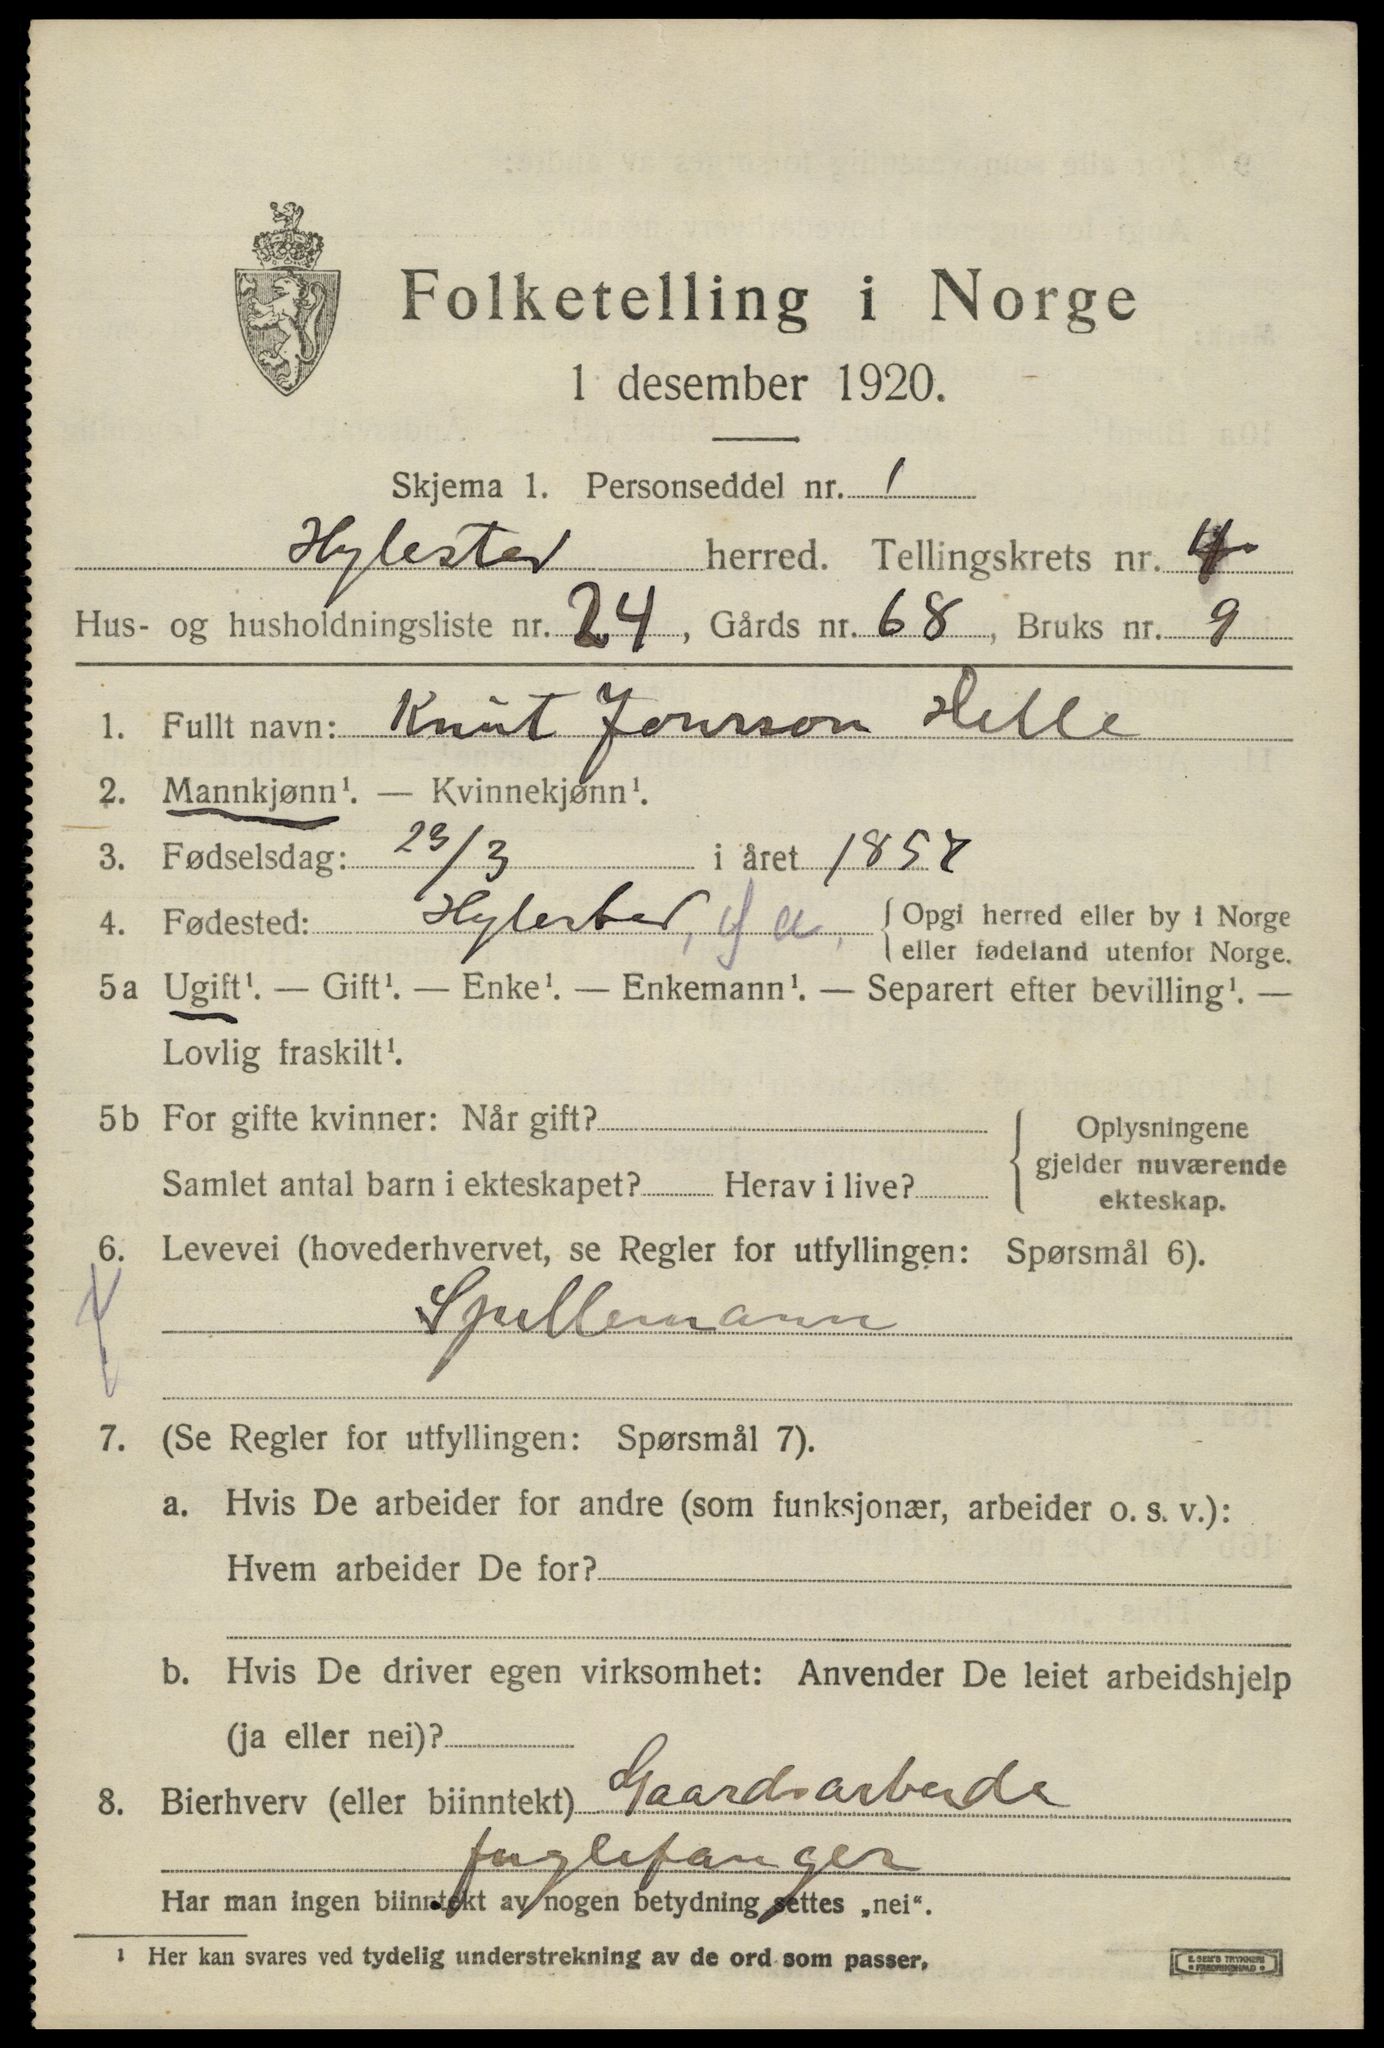 Folketelling i Norge
1 desember 1920.
Skjema 1. Personseddel nr. 1
Hylestad herred. Tellingskrets nr. 4
Hus- og husholdningsliste nr. 24, Gårds nr. 68, Bruks nr. 9
1. Fullt navn: Knut Jonsson Helle
2. Mannkjønn¹. — Kvinnekjønn¹.
3. Fødselsdag: 23/3 i året 1857
4. Fødested: Hylestad, { Opgi herred eller by i Norge
eller fødeland utenfor Norge.
5a Ugift¹. — Gift¹. — Enke¹. — Enkemann¹. — Separert efter bevilling¹. —
Lovlig fraskilt¹.
5b For gifte kvinner: Når gift?
Samlet antal barn i ekteskapet? Herav i live?
{ Oplysningene
gjelder nuværende
ekteskap.
6. Levevei (hovederhvervet, se Regler for utfyllingen: Spørsmål 6).
Spillemann
7. (Se Regler for utfyllingen: Spørsmål 7).
a. Hvis De arbeider for andre (som funksjonær, arbeider o. s. v.):
Hvem arbeider De for?
b. Hvis De driver egen virksomhet: Anvender De leiet arbeidshjelp
(ja eller nei)?
8. Bierhverv (eller biinntekt) Gaardsarbeide
fuglefanger
Har man ingen biinntekt av nogen betydning settes „nei“.
1 Her kan svares ved tydelig understrekning av de ord som passer.
E. SEM'S TRYKKERI
FREDRIKSHALD